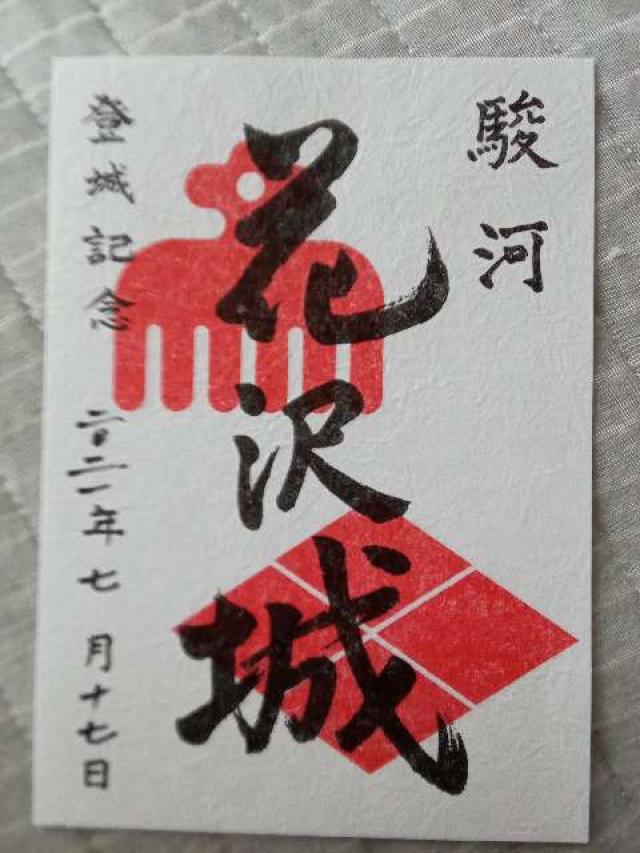 駿河
花沢城
登城記念
二〇二一年七月十七日